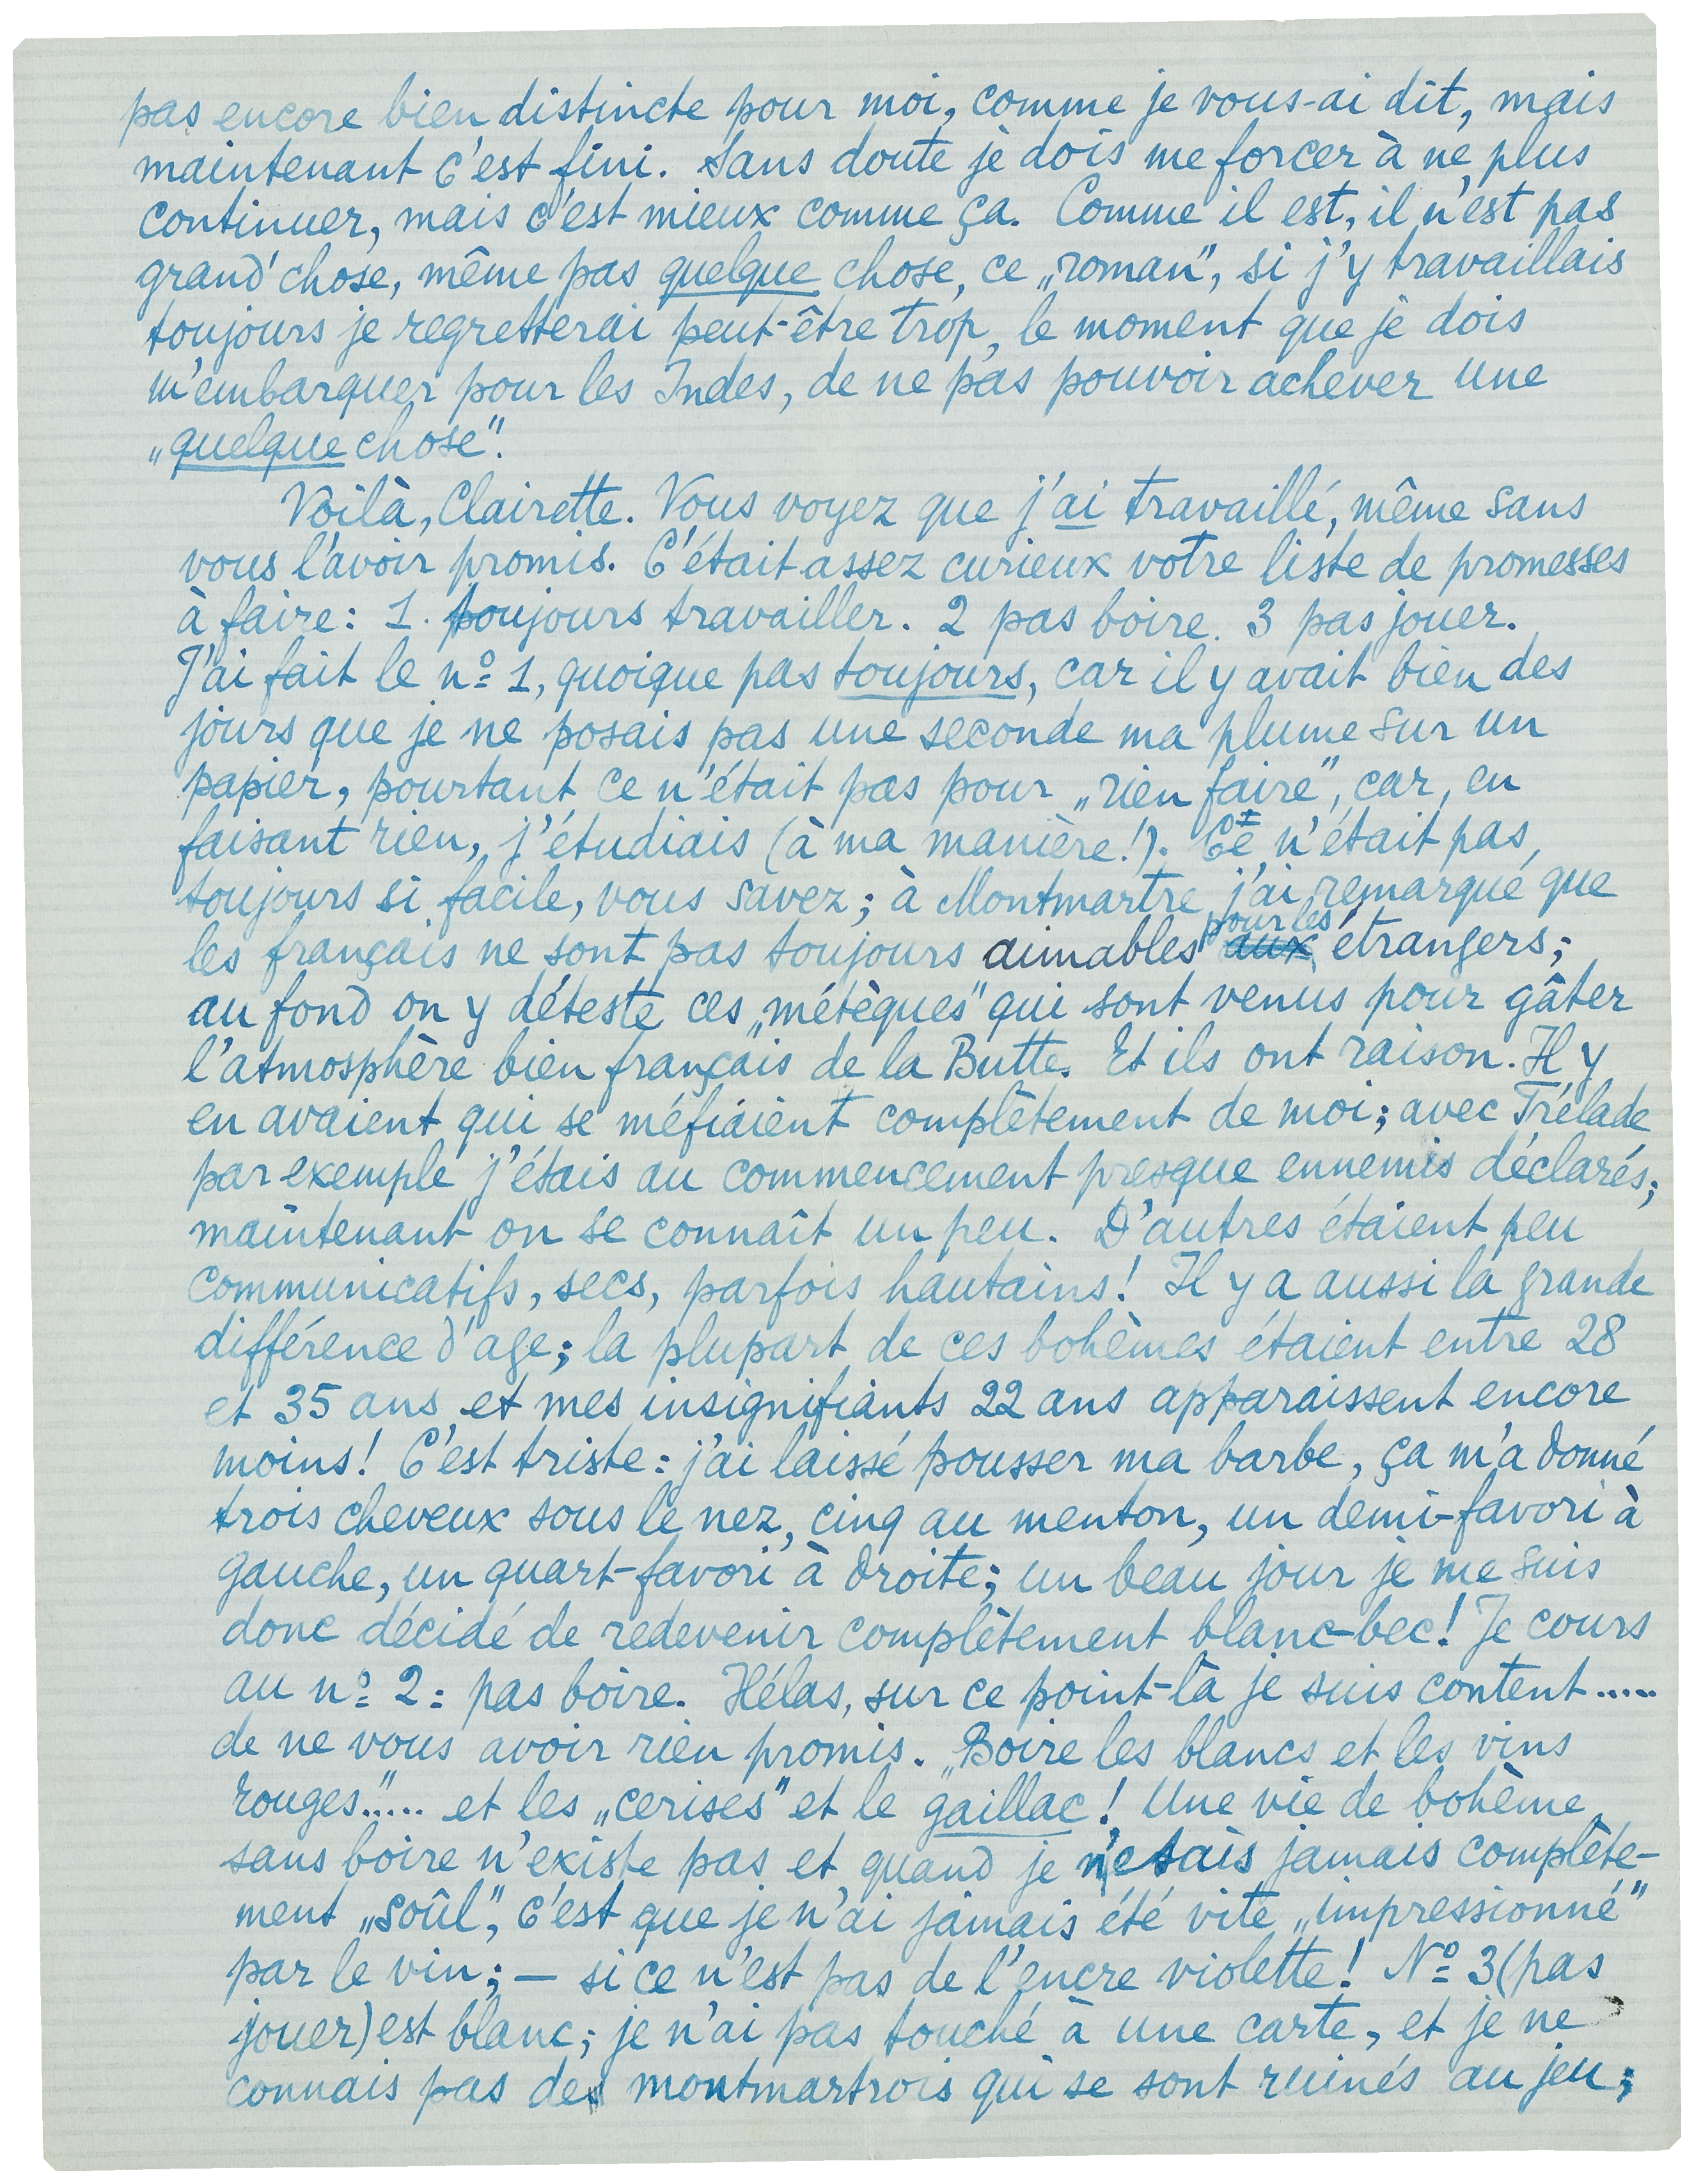 pas encore bien distincte pour moi, comme je vous-ai dit, mais
maintenant c'est fini. Sans doute je dois me forcer à ne plus
continuer, mais c'est mieux comme ça. Comme il est, il n'est pas
grand'chose, même pas quelque chose, ce „roman", si j'y travaillais
toujours je regretterai peut-être trop, le moment que je dois
m'embarquer pour les Indes, de ne pas pouvoir achever une
„quelque chose".
Voilà, Clairette. Vous voyez que j'ai travaillé, même sans
vous l'avoir promis. C'était assez curieux votre liste de promesses
à faire: 1. toujours travailler. 2 pas boire. 3 pas jouer.
J'ai fait le nº 1, quoique pas toujours, car il y avait bien des
jours que je ne posais pas une seconde ma plume sur un
papier, pourtant ce n'était pas pour „rien faire", car, en
faisant rien, j'étudiais (à ma manière!). Ce n'était pas
toujours si facile, vous savez; à Montmartre j'ai remarqué que
les français ne sont pas toujours aimables pour les aux étrangers;
au fond on y déteste ces „métèques" qui sont venus pour gâter
l'atmosphère bien français de la Butte. Et ils ont raison. Il y
en avaient qui se méfiaient complètement de moi; avec Trélade
par exemple j'étais au commencement presque ennemis déclarés;
maintenant on se connaît un peu. D'autres étaient peu
communicatifs, secs, parfois hautains! Il y a aussi la grande
différence d'age; la plupart de ces bohèmes étaient entre 28
et 35 ans et mes insignifiants 22 ans apparaissent encore
moins! C'est triste: j'ai laissé pousser ma barbe, ça m'a donné
trois cheveux sous le nez, cinq au menton, un demi-favori à
gauche, un quart-favori à droite; un beau jour je me suis
donc décidé de redevenir complètement blanc-bec! Je cours
au nº 2: pas boire. Hélas, sur ce point-là je suis content.....
de ne vous avoir rien promis. „Boire les blancs et les vins
rouges"..... et les „cerises" et le gaillac! Une vie de bohème
sans boire n'existe pas et quand je n'etais jamais complète-
ment „soûl", c'est que je n'ai jamais été vite „impressionné"
par le vin; — si ce n'est pas de l'encre violette! Nº 3 (pas
jouer) est blanc; je n'ai pas touché à une carte, et je ne
connais pas de montmartrois qui se sont ruinés au jeu;